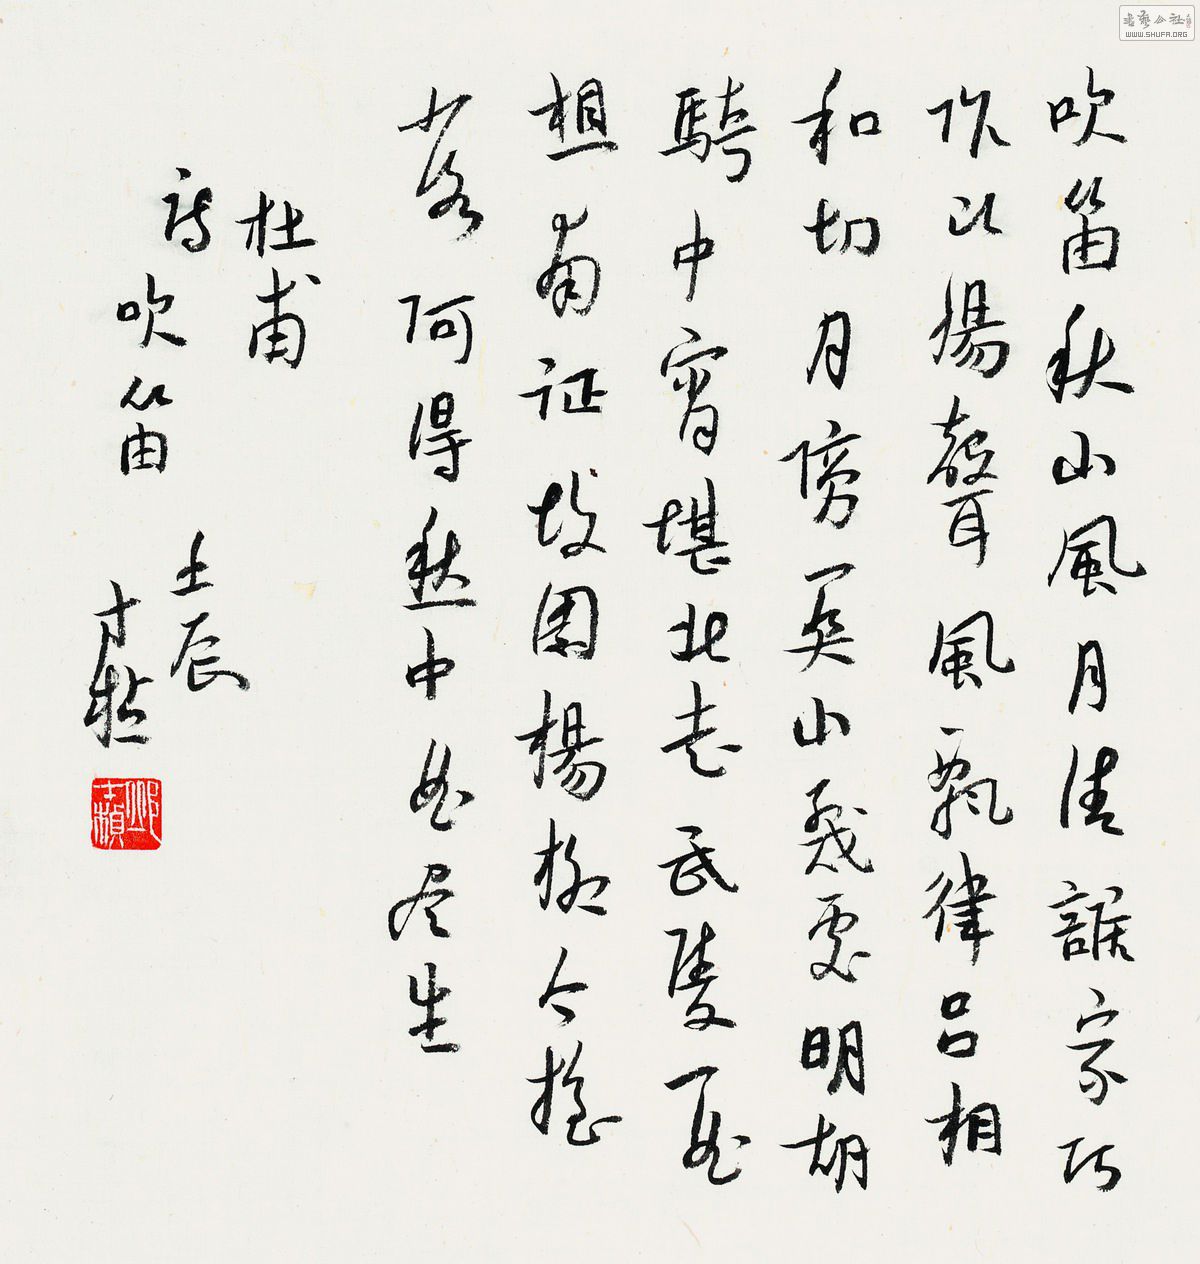 吹笛秋山風月清誰家巧
作断腸聲風飄律呂相
和切月傍関山幾處明胡
騎中宵堪北走武陵一曲
想南征故園楊柳今搖
落何得愁中曲尽生
杜甫
詩吹笛
壬辰
書藝公社
WWW.SHUFA.ORG